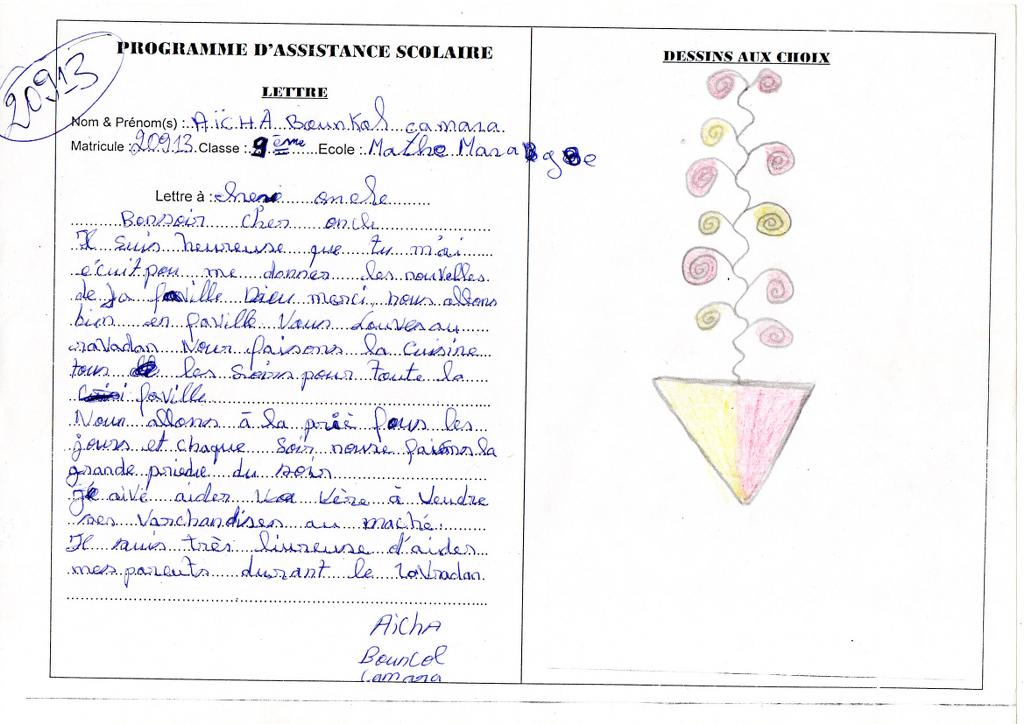 PROGRAMME D'ASSISTANCE SCOLAIRE
20913
LETTRE
Nom & Prénom(s) : AïCHA Bounkol camara
Matricule : 20913 Classe : 9ème Ecole : Mathe Mara
Lettre à : oncle
Bonsoir cher oncle
Il suis heureuse que tu m'ai
écuit pou me donner les nouvelles
de ja faville Dieu merci, nous allons
bien en faville Vous
Nour faisons la cuisine
tous les soirs pour toute la
faville
Nous allons à la priè fous les
jours et chaque soir nouse faisons la
grande priedé du soir
je aivé aider Va Vère à vendre
ses varchandises au maché.
Il suis très liureuse d'aider
mes parents durant le raVradan
AïcHA
Bouncol
Camara
DESSINS AUX CHOIX